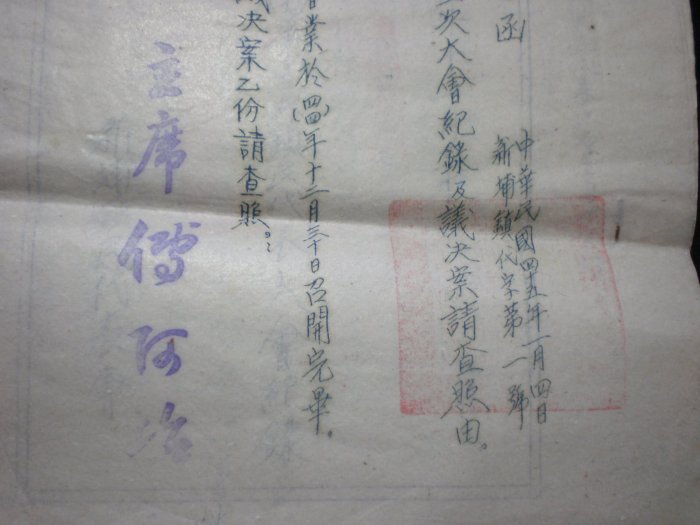 函
中華民國四五年一月四日
新埔鎮代字第一號
次大會紀錄及議決案請查照由。
業於(四四)年十二月三十日召開完畢。
決案乙份請查照。
主席